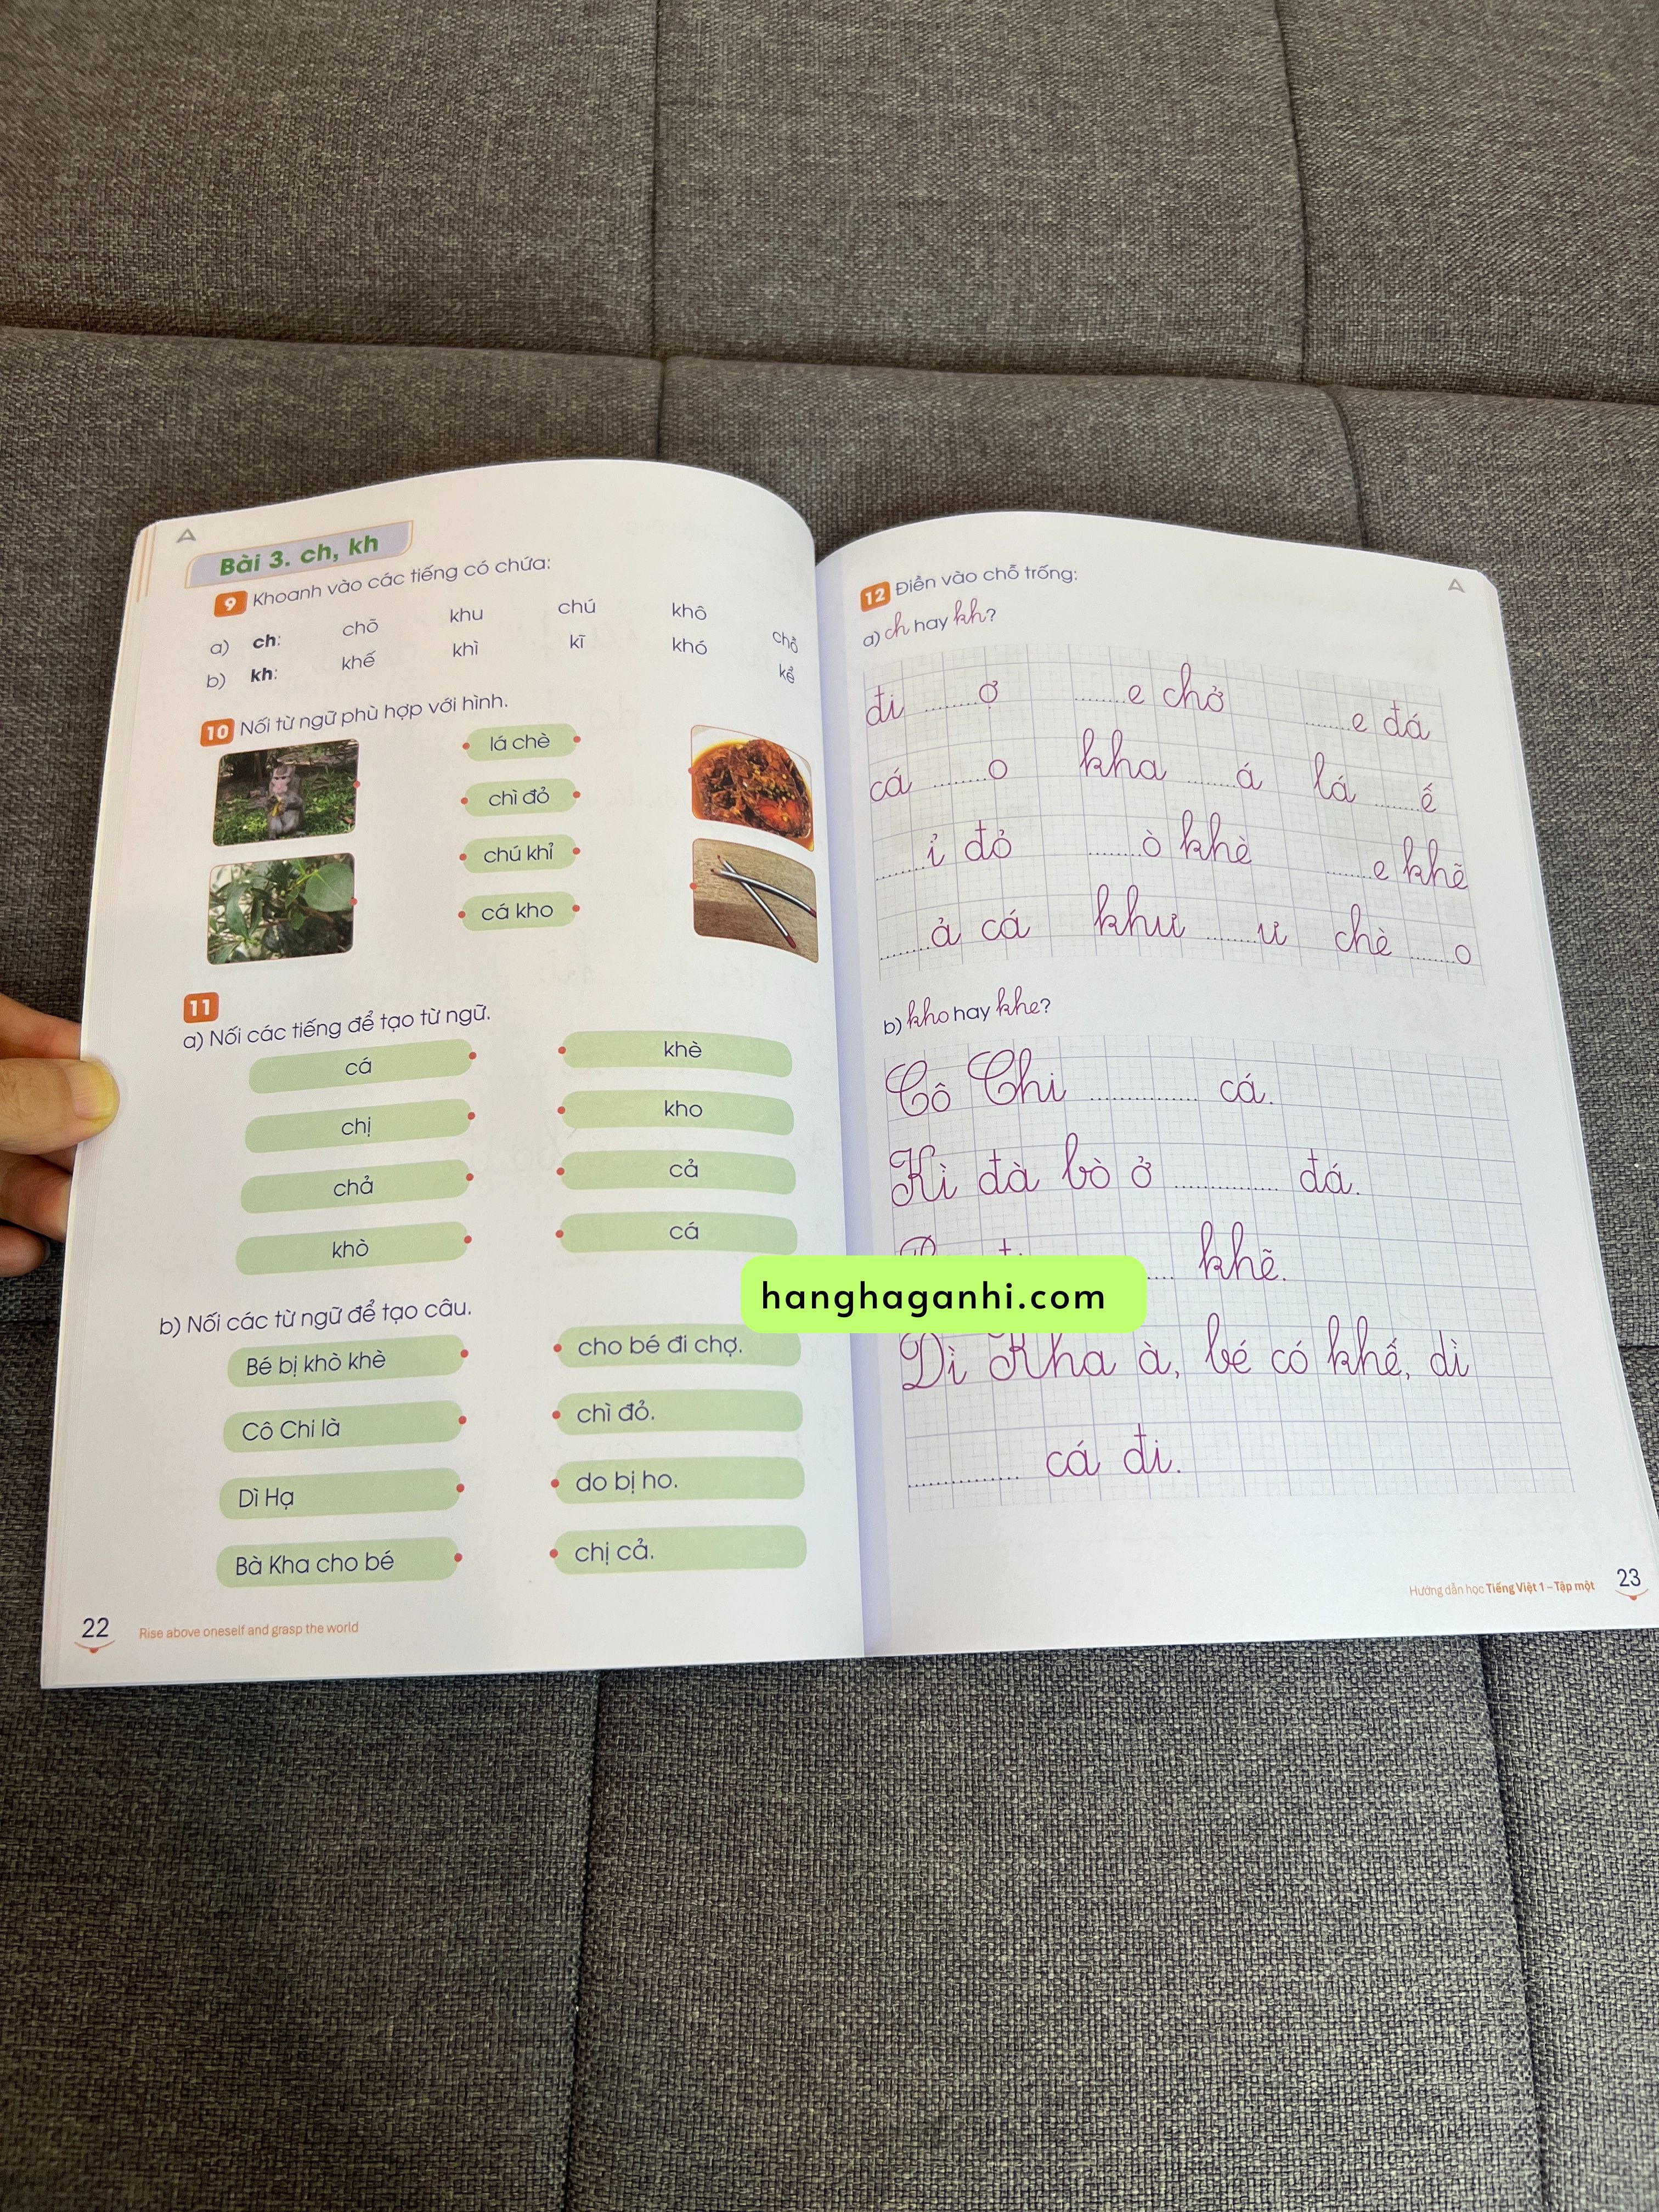 Bài 3. ch, kh
9 Khoanh vào các tiếng có chứa:
a) ch: chõ khu chú khô chở
b) kh: khế khì kĩ khó kể
10 Nối từ ngữ phù hợp với hình.
lá chè
chì đỏ
chú khỉ
cá kho
11
a) Nối các tiếng để tạo từ ngữ.
cá khè
chị kho
chả cả
khò cá
b) Nối các từ ngữ để tạo câu.
Bé bị khò khè cho bé đi chợ.
Cô Chi là chì đỏ.
Dì Hạ do bị ho.
Bà Kha cho bé chị cả.
22 Rise above oneself and grasp the world
12 Điền vào chỗ trống:
a) ch hay kh?
đi ........ơ ........e chở ........e đá
cá ........o kha ........á lá ........ế
........ỉ đỏ ........ò khè ........e khẽ
........ả cá khư ........ư chè ........o
b) kho hay khe?
Cô Chi ............ cá.
Kì đà bò ở ............ đá.
khẽ.
hanghaganhi.com
Dì Kha à, bé có khế, dì
............ cá đi.
Hướng dẫn học Tiếng Việt 1 – Tập một 23